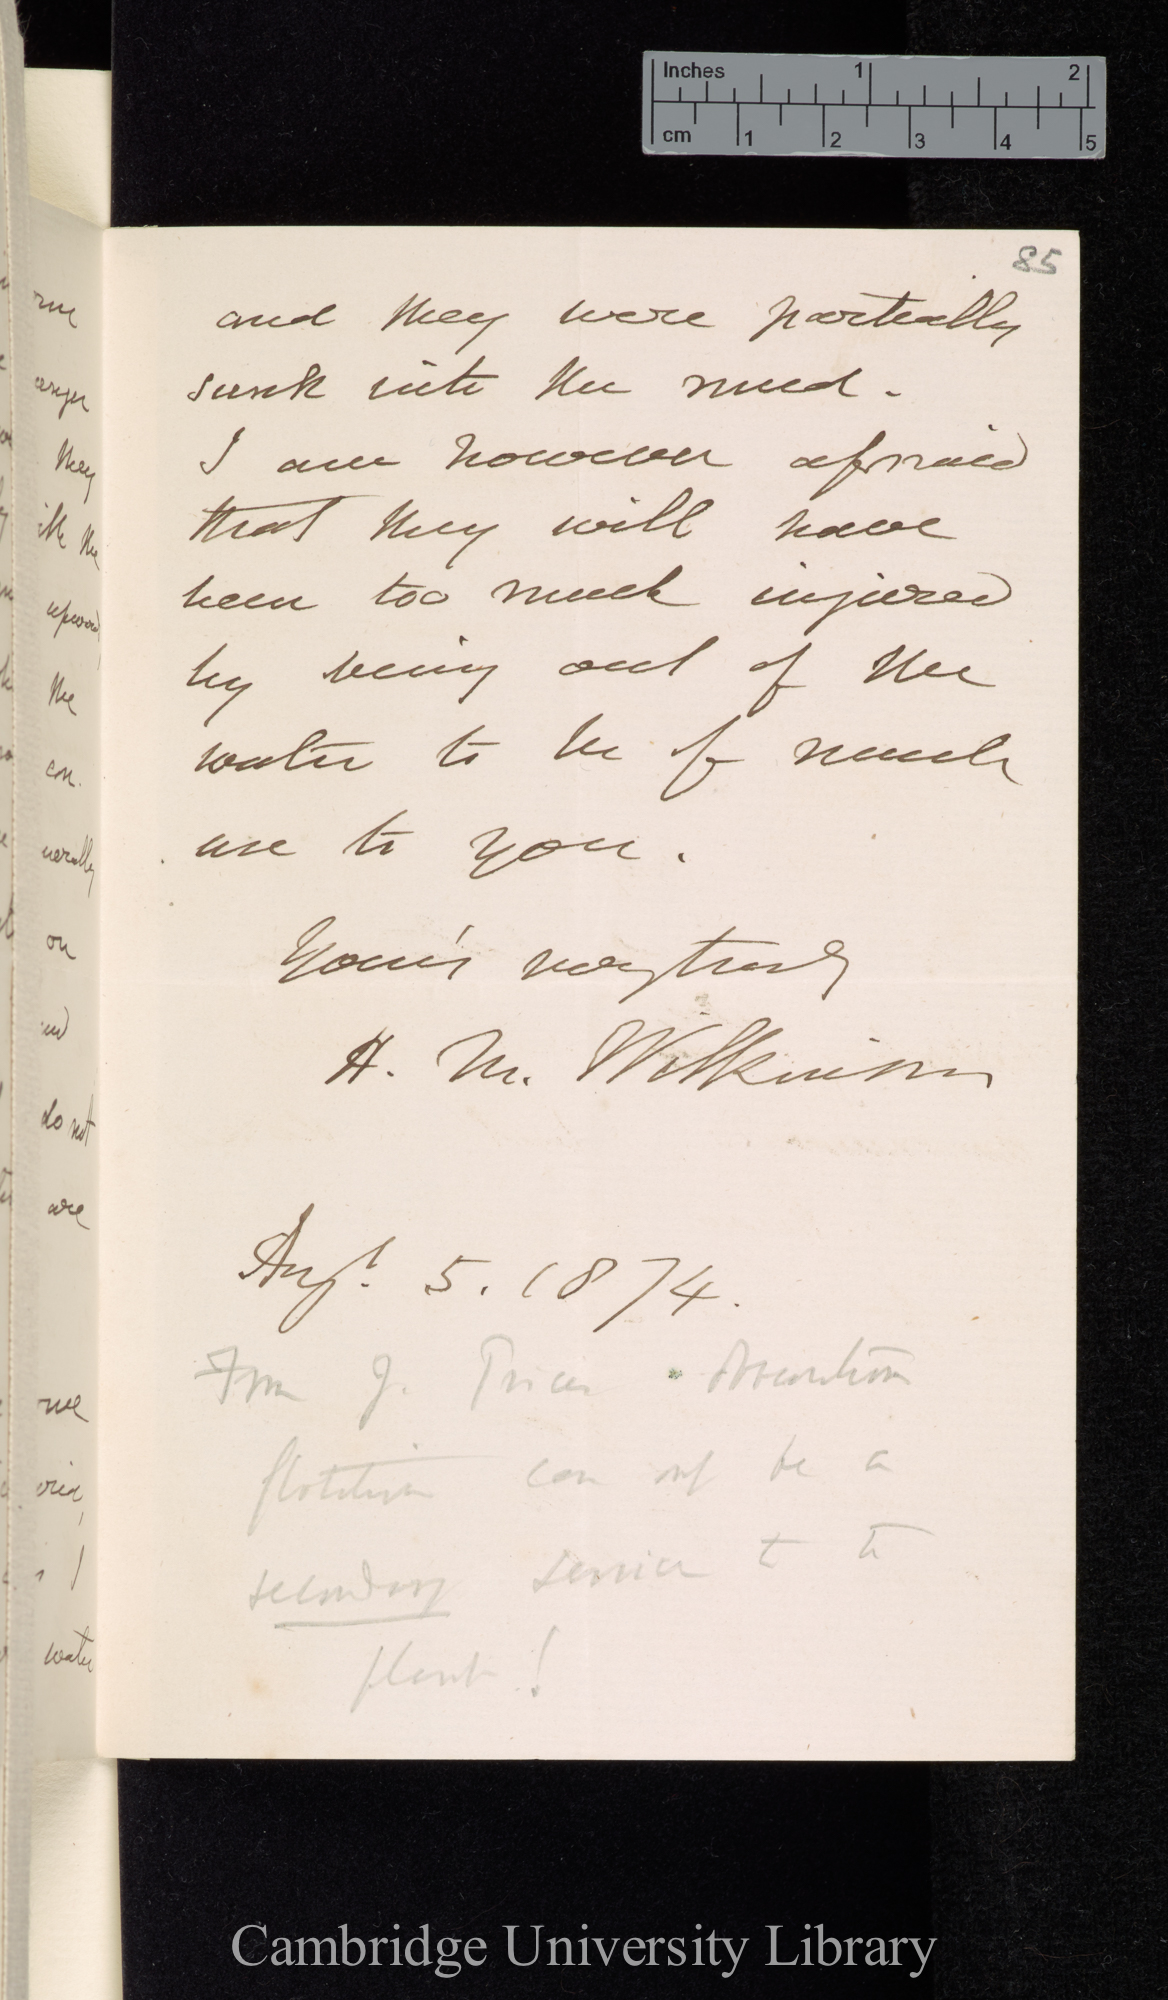 Inches 1 2
cm 1 2 3 4 5
85
and they were partially
sunk into the mud.
I am however afraid
that they will have
been too much injured
by being out of the
water to be of much
use to you.
Your's very truly
H. M. Wilkinson
Augt. 5. 1874.
From J. Price
flotation can not be a
secondary service to
plant!
they
the
con.
on
do not
are
me
I
water
Cambridge University Library